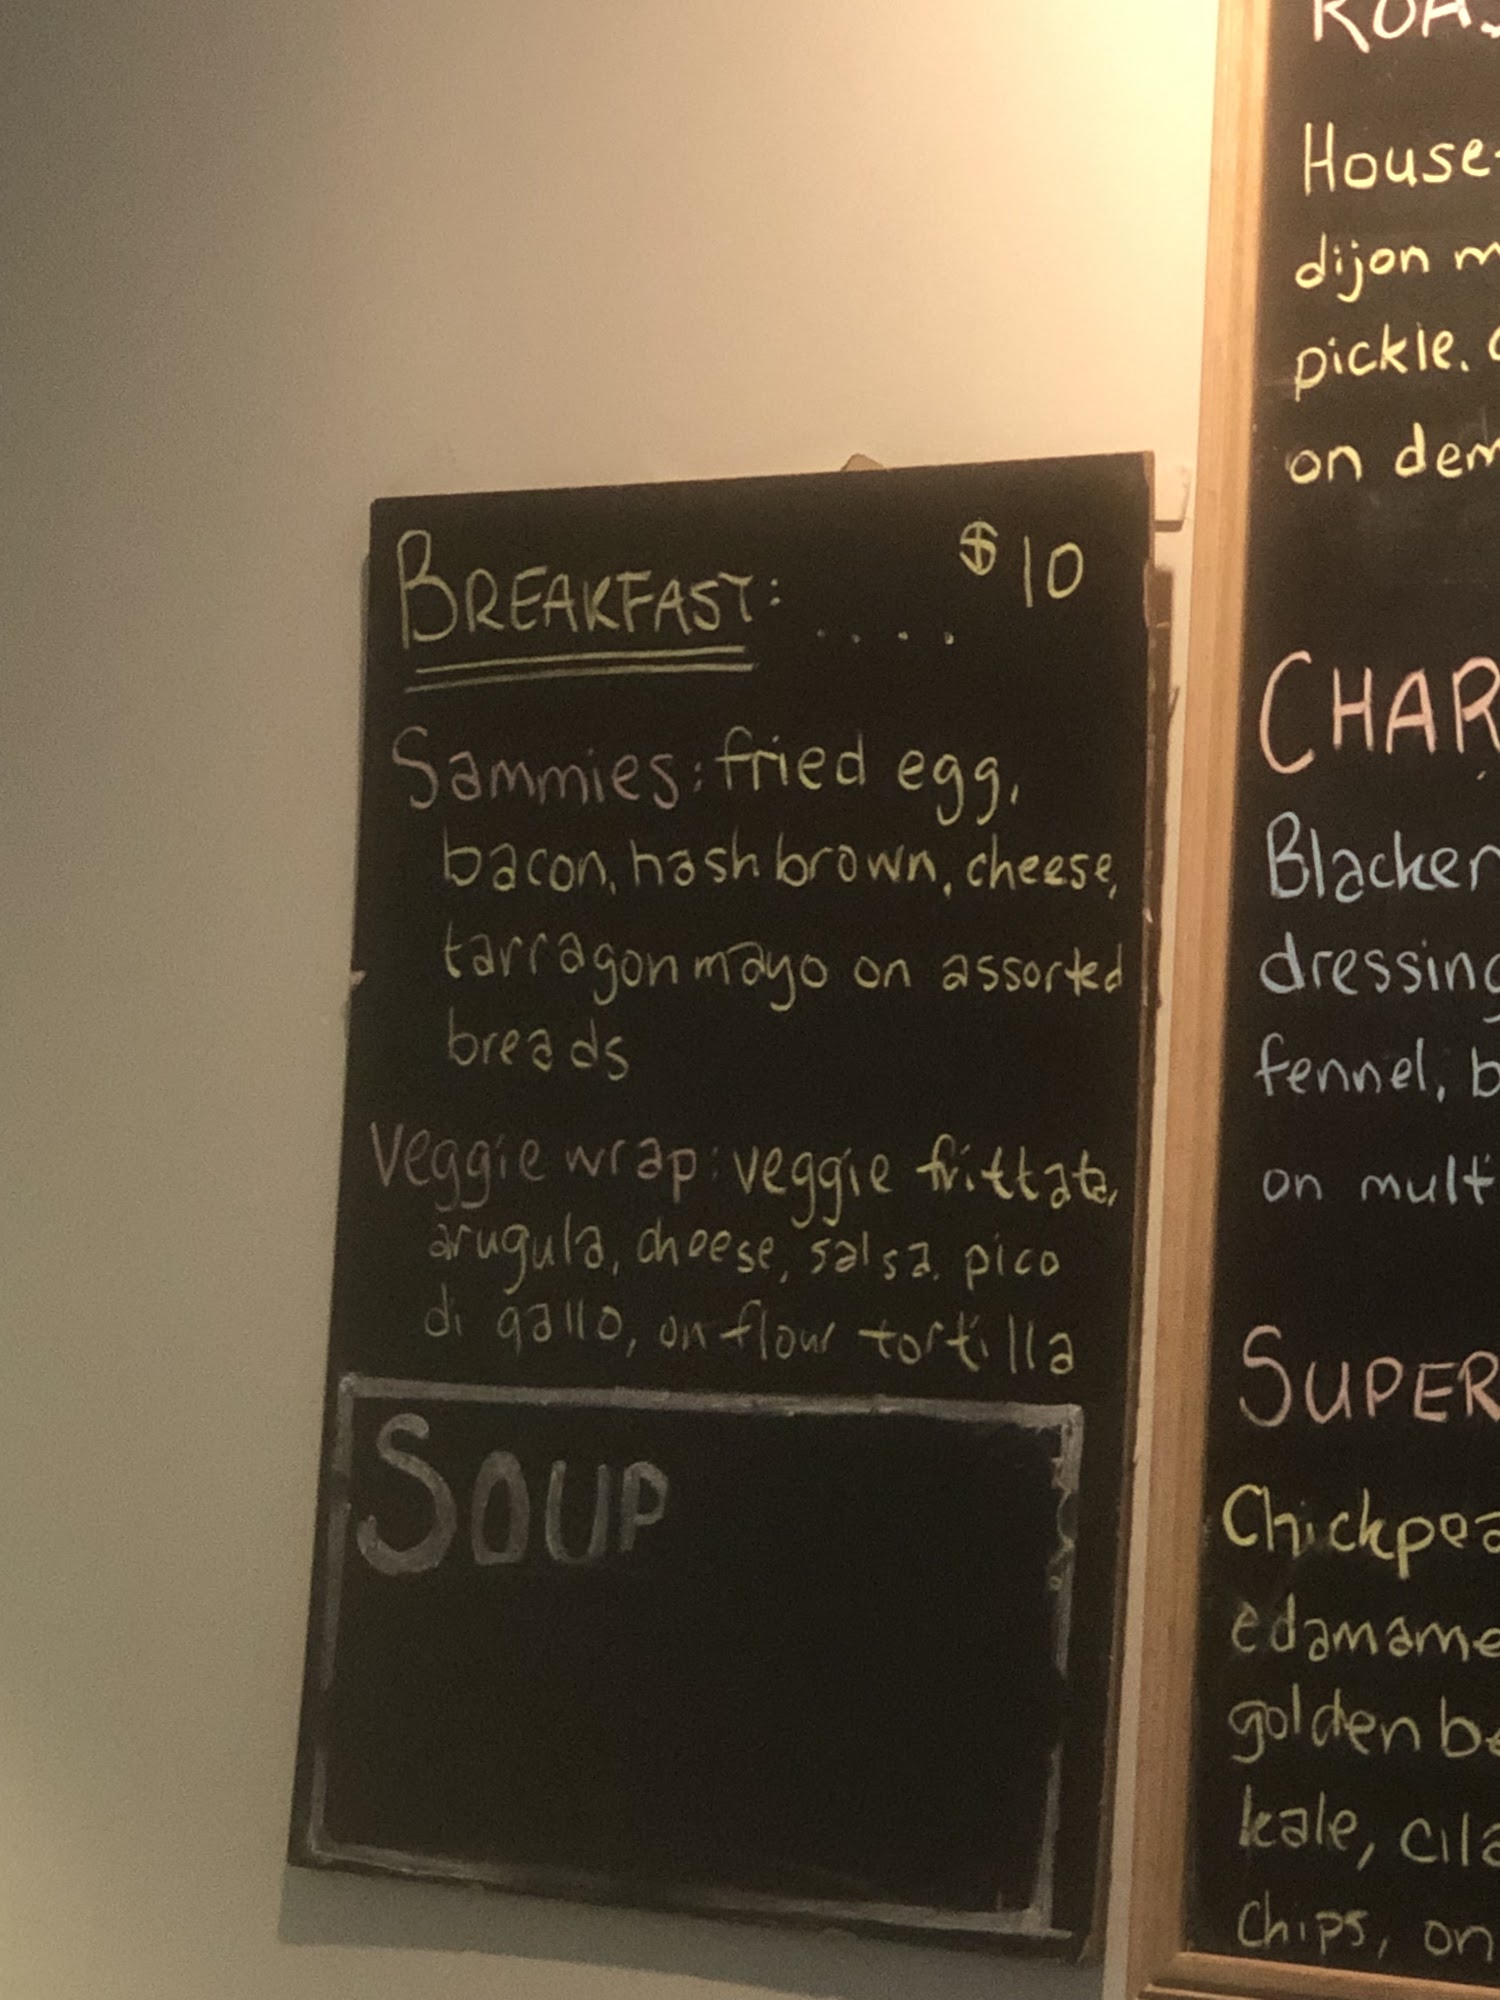 BREAKFAST: .... $10
Sammies: fried egg,
bacon, hash brown, cheese,
tarragon mayo on assorted
breads
Veggie wrap: veggie frittata,
arugula, cheese, salsa, pico
di gallo, on flour tortilla
SOUP
House-
dijon
pickle.
on
CHAR
dressing
fennel,
on
SUPER
edamame
golden
kale,
Chips, on